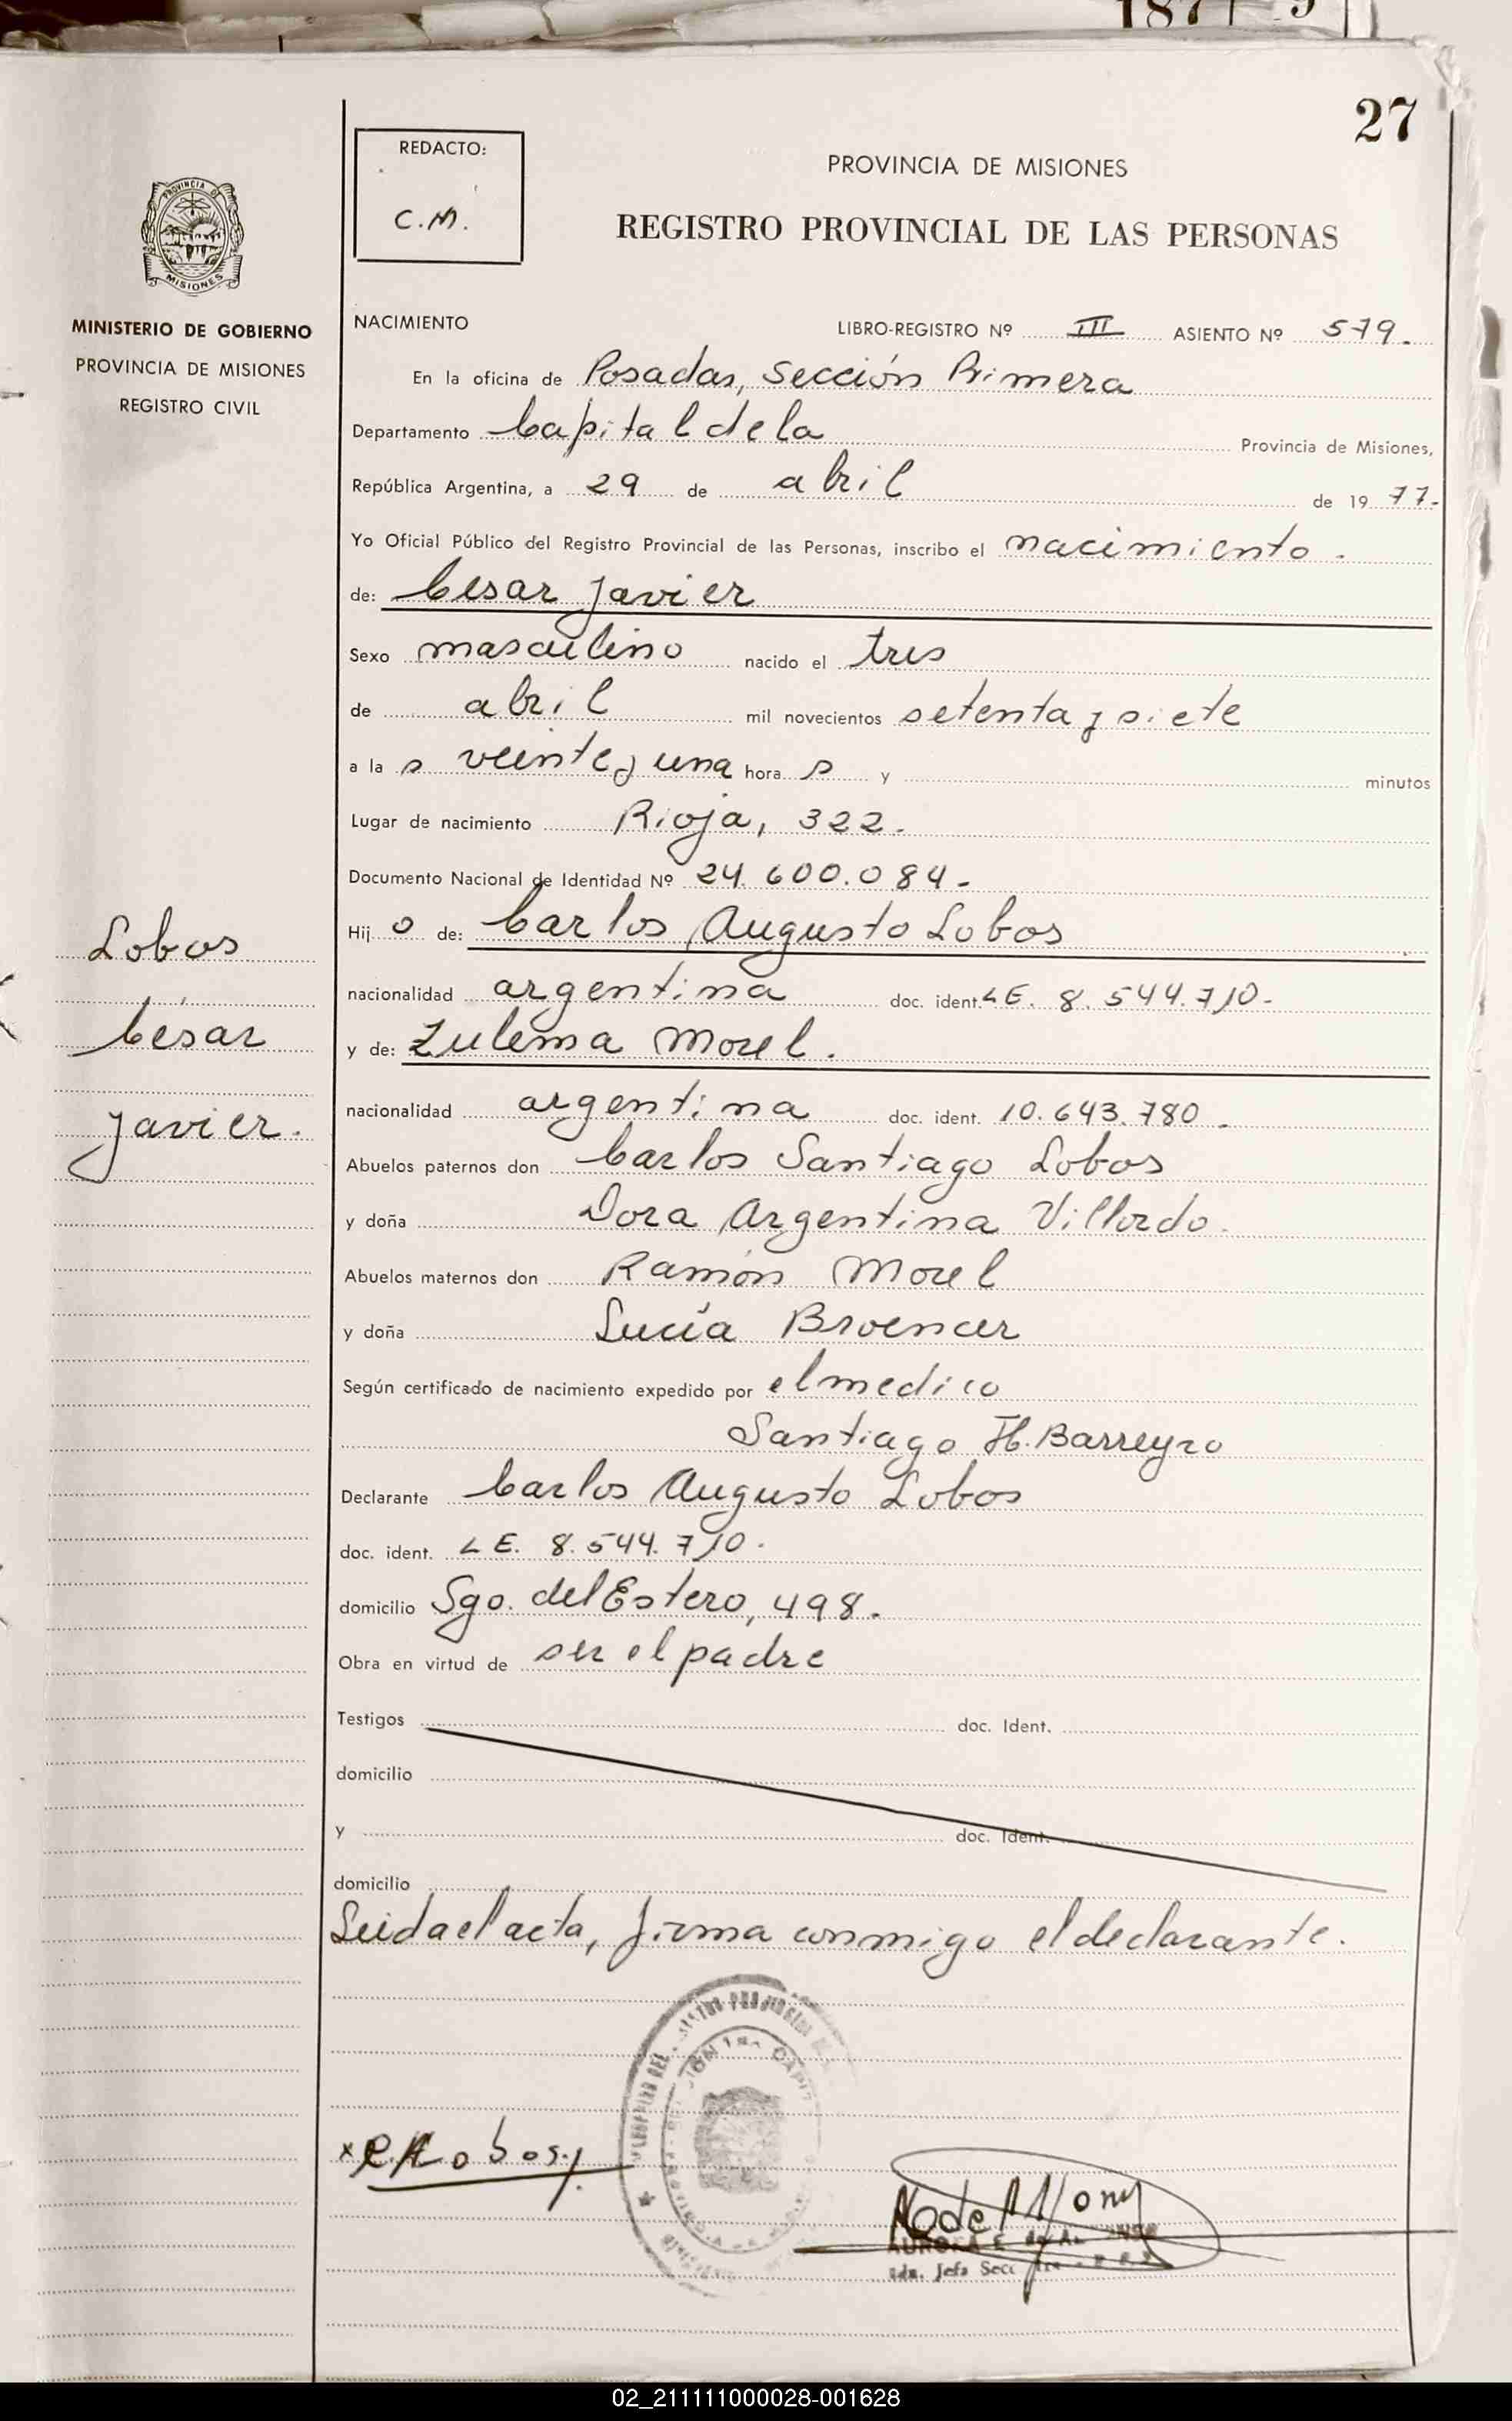 187 9
27
REDACTO:
C.M.
PROVINCIA DE MISIONES
REGISTRO PROVINCIAL DE LAS PERSONAS
PROVINCIA DE
MISIONES
MINISTERIO DE GOBIERNO
PROVINCIA DE MISIONES
REGISTRO CIVIL
NACIMIENTO LIBRO-REGISTRO Nº III ASIENTO Nº 579.
En la oficina de Posadas, Sección Primera
Departamento Capital de la Provincia de Misiones,
República Argentina, a 29 de abril de 1977.
Yo Oficial Público del Registro Provincial de las Personas, inscribo el nacimiento.
de: Cesar Javier
Sexo masculino nacido el tres
de abril mil novecientos setenta y siete
a la s veinte y una hora s y minutos
Lugar de nacimiento Rioja, 322.
Documento Nacional de Identidad Nº 24.600.084.
Hij o de: Carlos Augusto Lobos
nacionalidad argentina doc. ident. LE. 8.544.710.
y de: Zulema Morel.
nacionalidad argentina doc. ident. 10.643.780.
Abuelos paternos don Carlos Santiago Lobos
y doña Dora Argentina Villordo.
Abuelos maternos don Ramón Morel
y doña Lucía Broencer
Según certificado de nacimiento expedido por el medico
Santiago H. Barreyro
Declarante Carlos Augusto Lobos
doc. ident. LE. 8.544.710.
domicilio Sgo. del Estero, 498.
Obra en virtud de ser el padre
Testigos doc. Ident.
domicilio
y doc. Ident.
domicilio
Leida el acta, firma conmigo el declarante.
Lobos
César
Javier.
x Lobos
Jefa Secc
02_211111000028-001628